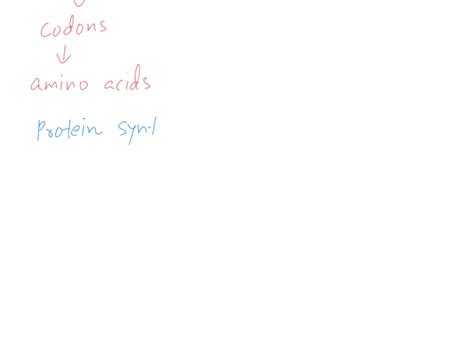 ↓
codons
↓
amino acids
Protein syn